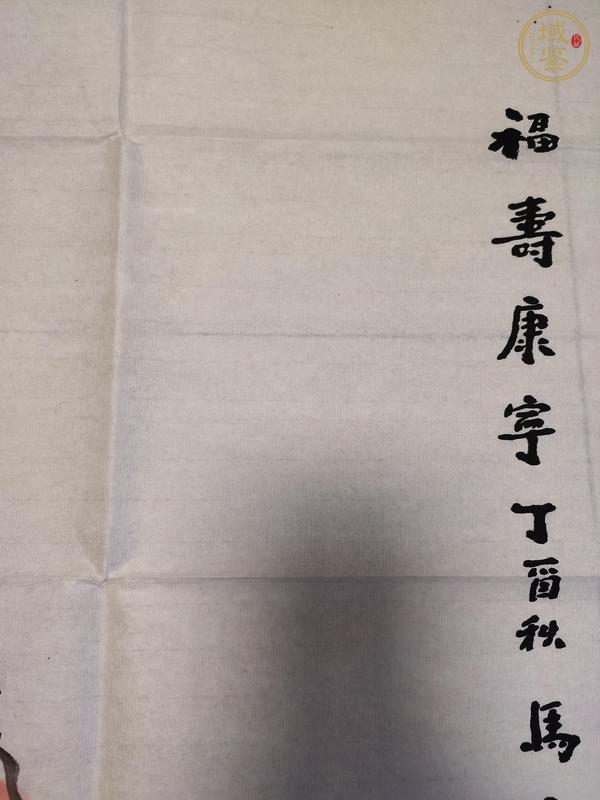 福壽康寧丁酉秋馬
域鉴